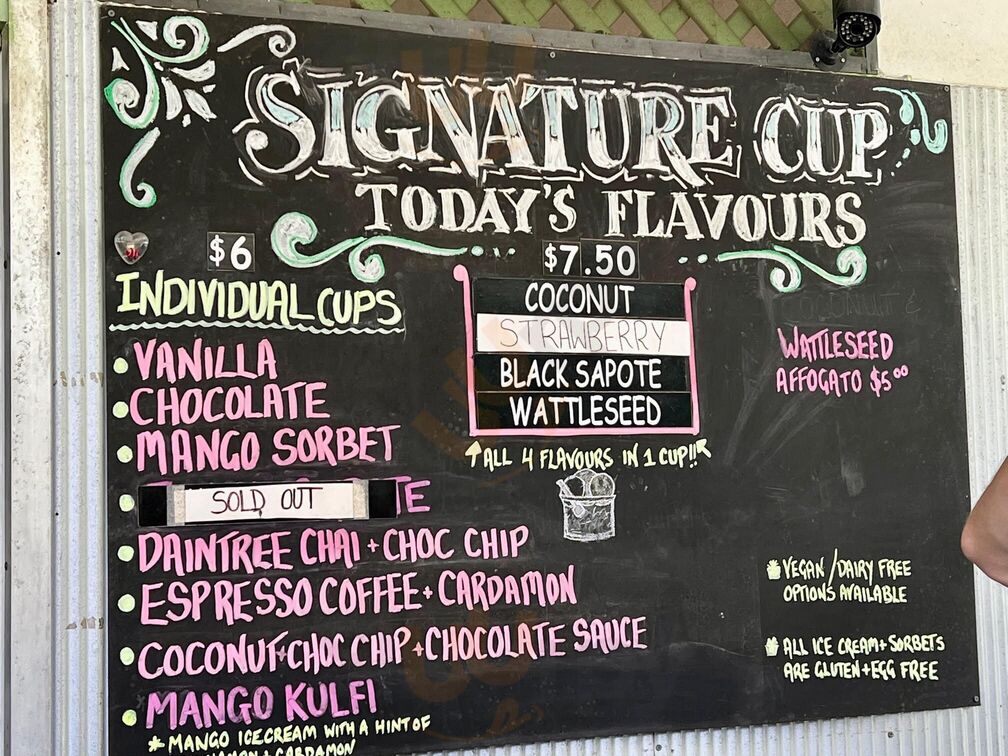 SIGNATURE CUP
TODAY'S FLAVOURS
$6
INDIVIDUAL CUPS
• VANILLA
• CHOCOLATE
• MANGO SORBET
• SOLD OUT TE
• DAINTREE CHAI + CHOC CHIP
• ESPRESSO COFFEE + CARDAMON
• COCONUT + CHOC CHIP + CHOCOLATE SAUCE
• MANGO KULFI
* MANGO ICECREAM WITH A HINT OF
CARDAMON
$7.50
COCONUT
STRAWBERRY
BLACK SAPOTE
WATTLESEED
↑ ALL 4 FLAVOURS IN 1 CUP!!
COCONUT &
WATTLESEED
AFFOGATO $5⁰⁰
VEGAN/DAIRY FREE
OPTIONS AVAILABLE
ALL ICE CREAM + SORBETS
ARE GLUTEN + EGG FREE